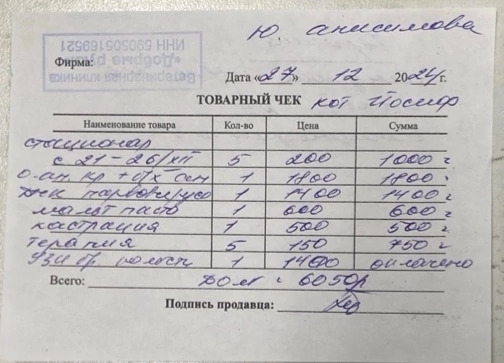 Ю. Анисимова
Ветеринарная клиника
«Добрые руки»
ИНН 590505169521
Фирма:
Дата «27» 12 2024 г.
ТОВАРНЫЙ ЧЕК кот Иосиф
Наименование товара Кол-во Цена Сумма
стационар
с 21-26/XII 5 200 1000 =
о.ан. кр + б/х ан 1 1800 1800 =
1 1400 1400 =
мальт паста 1 600 600 =
кастрация 1 500 500 =
терапия 5 150 750 =
УЗИ бр. полости 1 1400 оплачено
Всего: долг = 6050р
Подпись продавца: